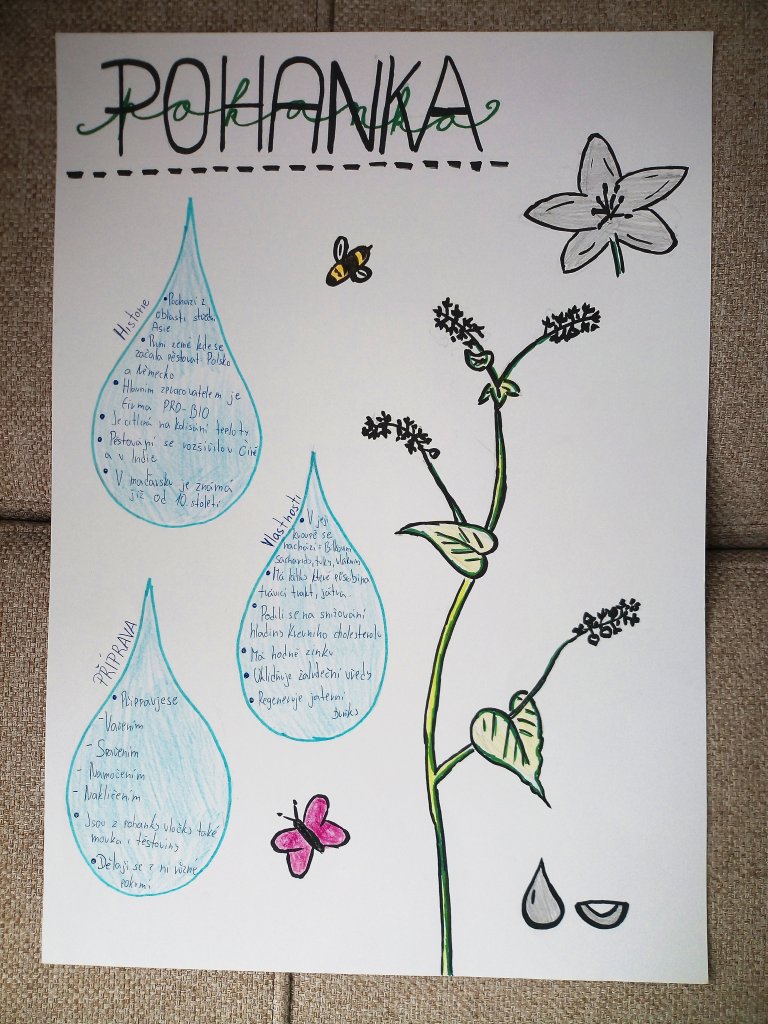 POHANKA
Pohanka
Historie
• Pochází z
oblasti střední
Asie
• První země kde se
začala pěstovat Polsko
a Německo
• Hlavním zpracovatelem je
firma PRO-BIO
• Je citlivá na kolísání teploty
• Pěstování se rozšířilo v Číně
a v Indie
• V je známá
již od 10. století
Vlastnosti
• V její
se
nachází = Bílkoviny
sacharidy, tuky, vláknina
• Má látky které působí na
trávicí trakt, játra
• Podílí se na snižování
hladiny krevního cholesterolu
• Má hodně zinku
• Uklidňuje žaludeční vředy
• Regeneruje jaterní
buňky
PŘÍPRAVA
• Připravuje se
- Vařením
- Spařením
- Namočením
- Nakličením
• Jsou z pohanky vločky také
mouka i těstoviny
• Dělají se z ní různé
pokrmi